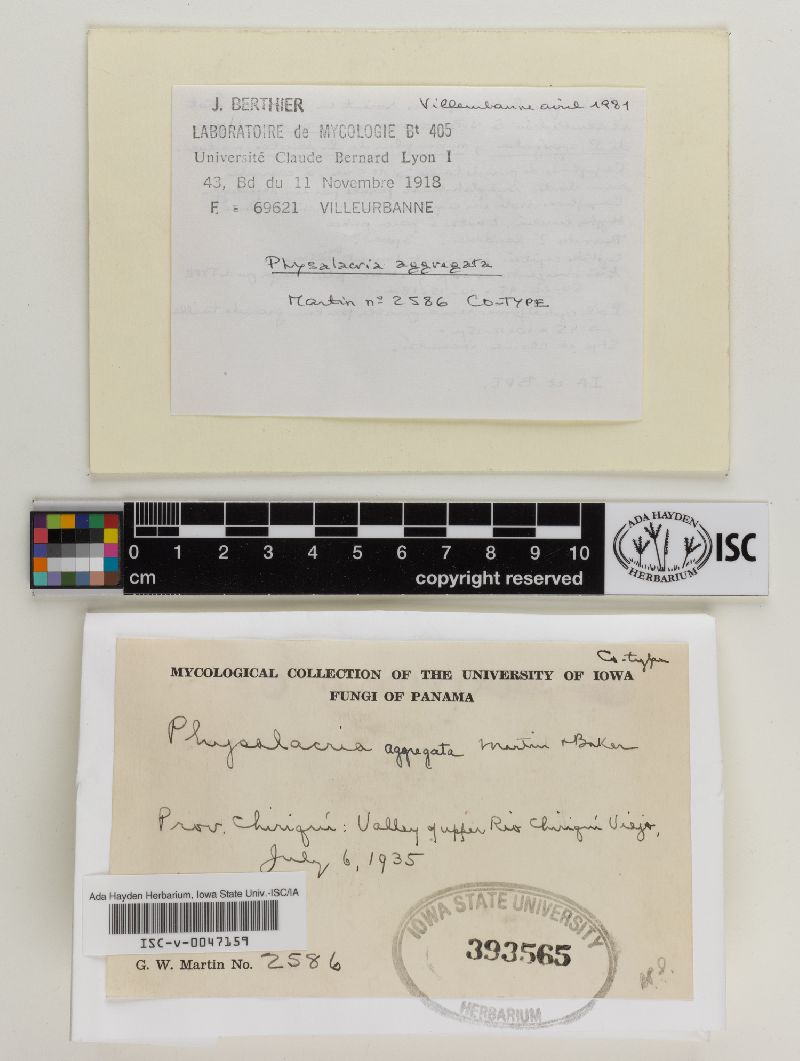 J. BERTHIER
Villeurbanne avril 1981
LABORATOIRE de MYCOLOGIE Bt 405
Université Claude Bernard Lyon I
43, Bd du 11 Novembre 1918
F - 69621 VILLEURBANNE
Physalacria aggregata
Martin nº 2586 CO-TYPE
0 1 2 3 4 5 6 7 8 9 10
cm
copyright reserved
ADA HAYDEN
HERBARIUM
ISC
Co-type
MYCOLOGICAL COLLECTION OF THE UNIVERSITY OF IOWA
FUNGI OF PANAMA
Physalacria aggregata Martin & Baker
Prov. Chiriquí: Valley of upper Rio Chiriquí Viejo,
July 6, 1935
Ada Hayden Herbarium, Iowa State Univ.-ISC/IA
ISC-v-0047159
G. W. Martin No. 2586
IOWA STATE UNIVERSITY
393565
HERBARIUM